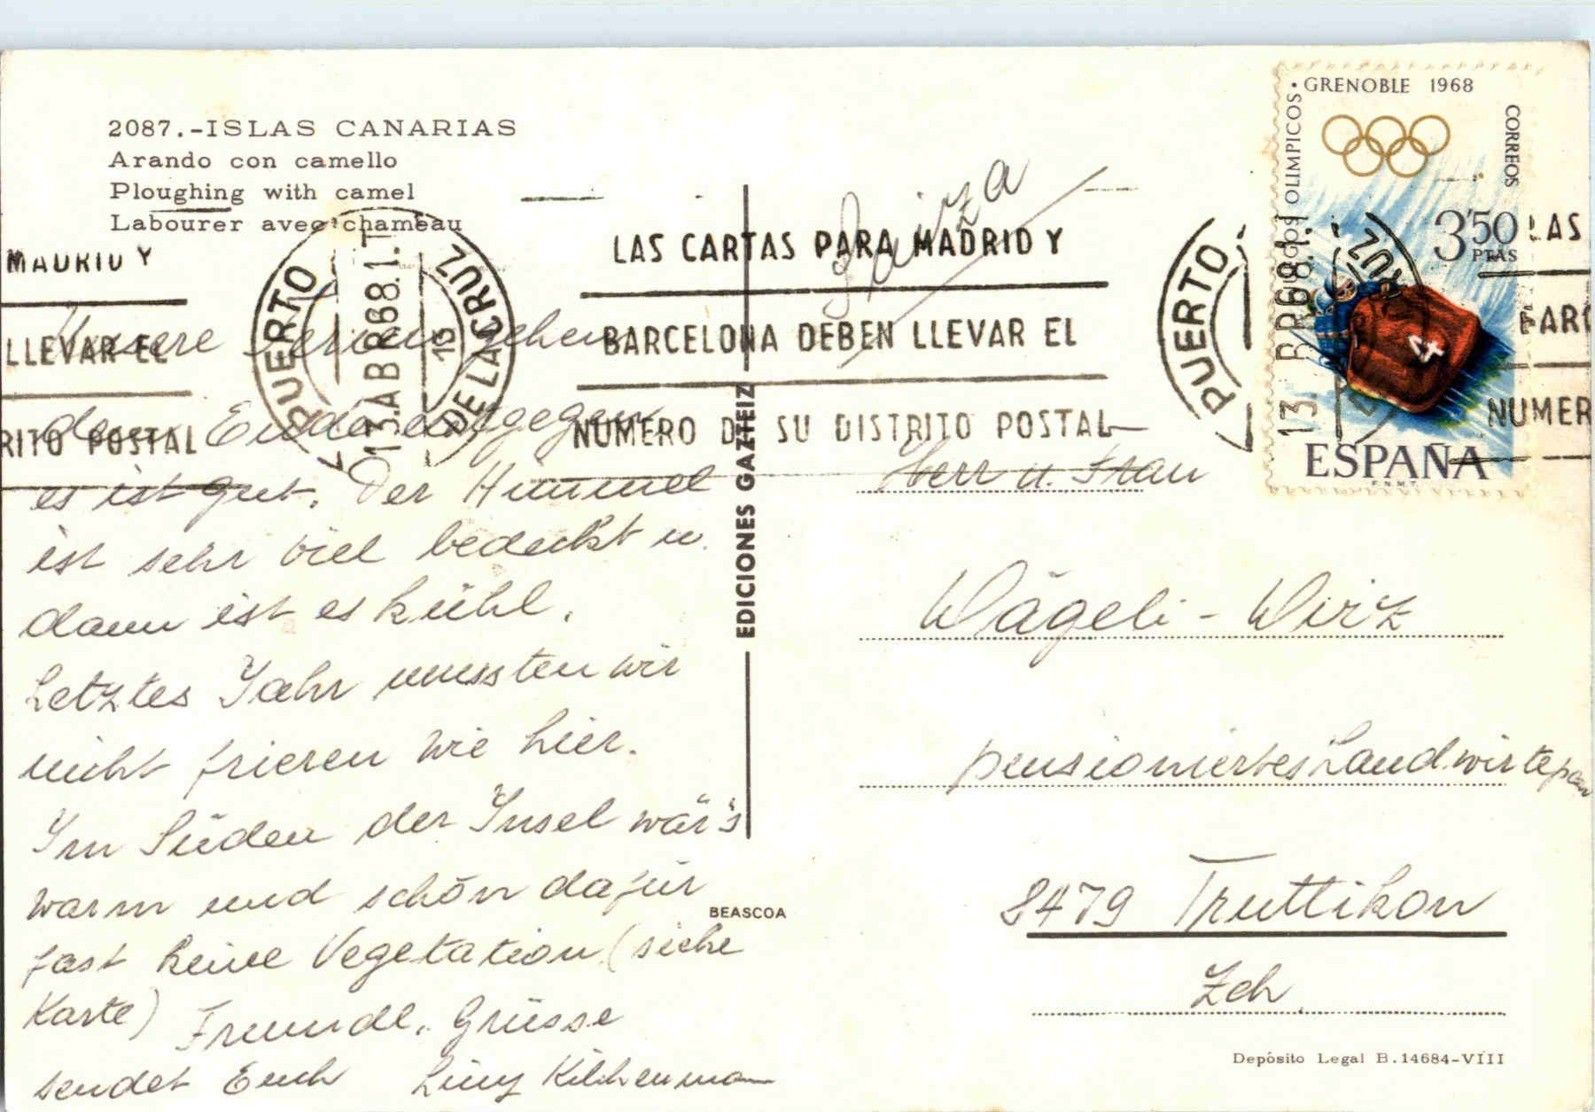 2087.-ISLAS CANARIAS
Arando con camello
Ploughing with camel
Labourer avec chameau
MADRID Y
LLEVAR EL
RITO POSTAL
PUERTO DE LA CRUZ
13.ABR68.1.T
13
LAS CARTAS PARA MADRID Y
BARCELONA DEBEN LLEVAR EL
NUMERO DE SU DISTRITO POSTAL
PUERTO
CRUZ
13
BR68.1.
LAS
BARC
NUMER
JUEGOS OLIMPICOS · GRENOBLE 1968
CORREOS
3'50
PTAS
4
ESPAÑA
F.N.M.T.
Unsere Ferien gehen
dem Ende entgegen
es ist gut. Der Himmel
ist sehr viel bedeckt u.
dann ist es kühl.
Letztes Jahr mussten wir
nicht frieren wie hier.
Im Süden der Insel wär's
warm und schön dafür
fast keine Vegetation (siehe
Karte) Freundl. Grüsse
sendet Euch
EDICIONES GAZTEIZ
BEASCOA
Suiza
Herr u. Frau
Wägeli - Wirz
pensioniertes Landwirtepaar
8479 Truttikon
Zch.
Depósito Legal B.14684-VIII